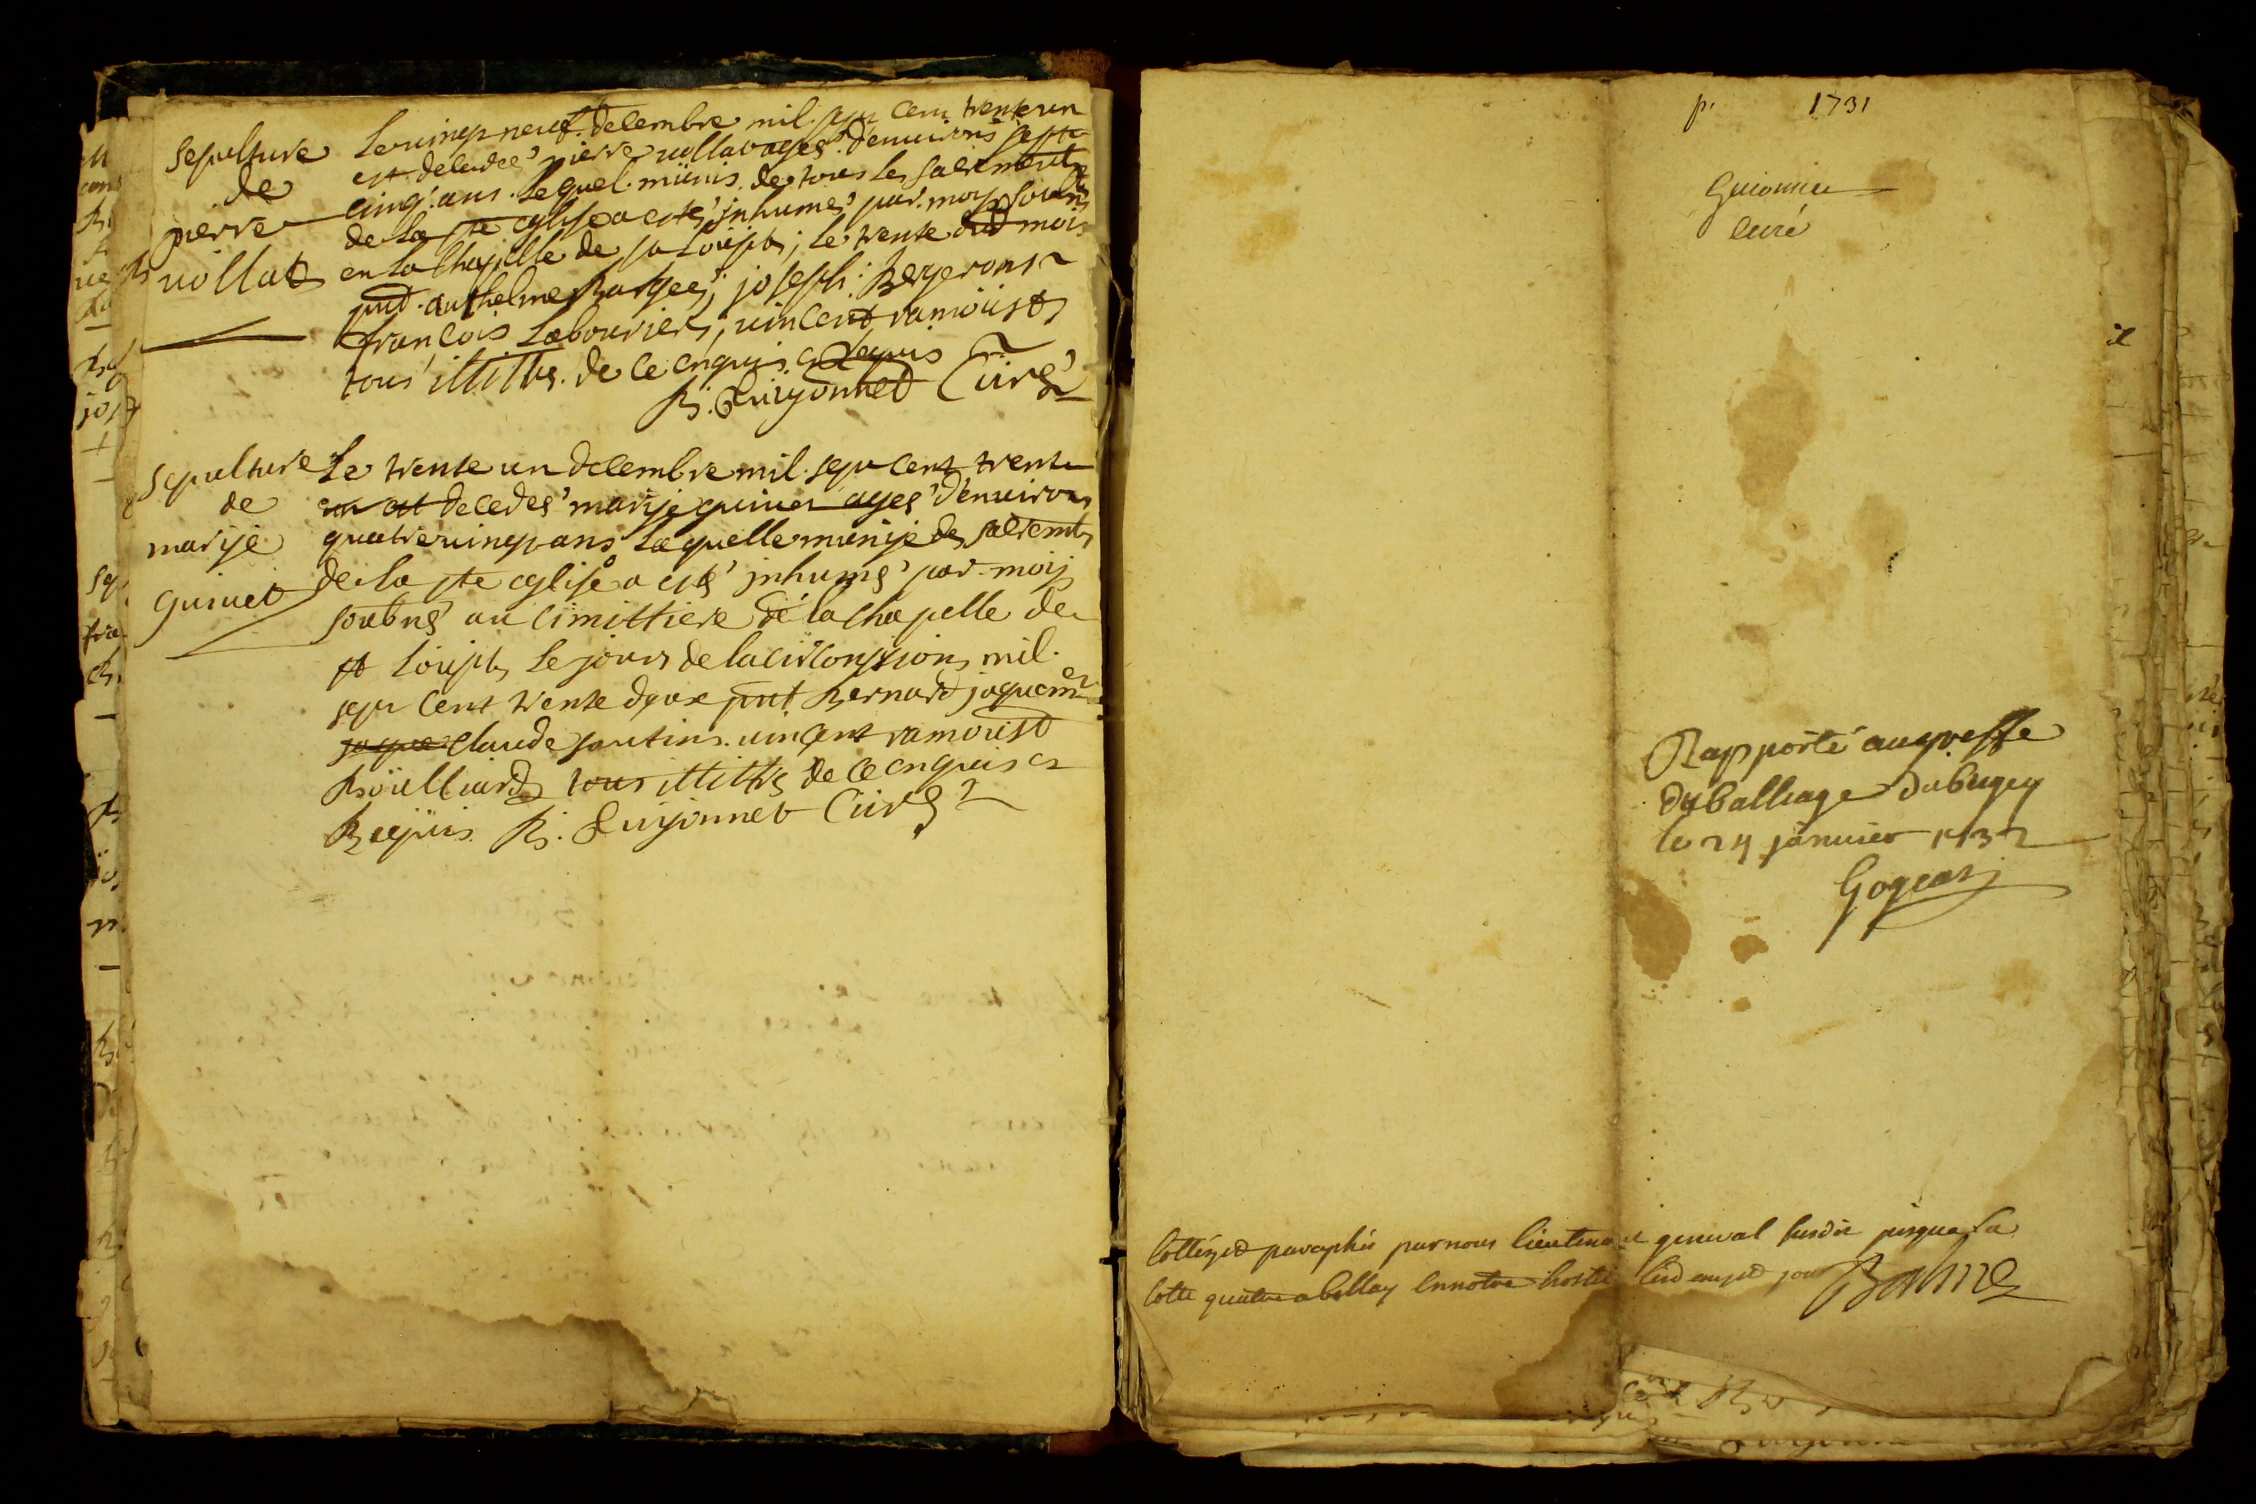 Sepulture
de
pierre
vollat
Le vingt neuf decembre mil sept cent trente un
est decedes pierre vollat ages d'environs septte
cinq ans. Lequel munis de tous les sacrements
de la ste eglise a estes inhumes par moy soubne
en la chapelle de st Loüpt, le trente dud mois
pnt anthelme ; joseph Bergerons
françois Labouriers, vincent ramoüst
tous illitrs de ce enquis et requis
B. Guiyonnet Cüré
Sepulture
de
marije
guinet
Le trente un decembre mil sept cent trente
un est decedes marije guinet ages d'environs
quatre vingt ans Laquelle munije des sacremts
de la ste eglise a estes inhumes par moij
soubnes au cimittiere de la chapelle de
st Loüpt, Le jours de la circonsisions mil
sept cent trente deux pnt Bernard jaquem
claude vincent ramoüst
tous illittrs de ce enquis et
Reqüis. B. Guiyonnet Cüré
p. 1731
Guionnet
curé
Rapporté au greffe
du balliage du bugey
le 24 janvier 1732
Gogean
Cottéz et paraphéz par nous lieutenant general susdit jusqua la
cotte quatre a bellay en notre hostel jour